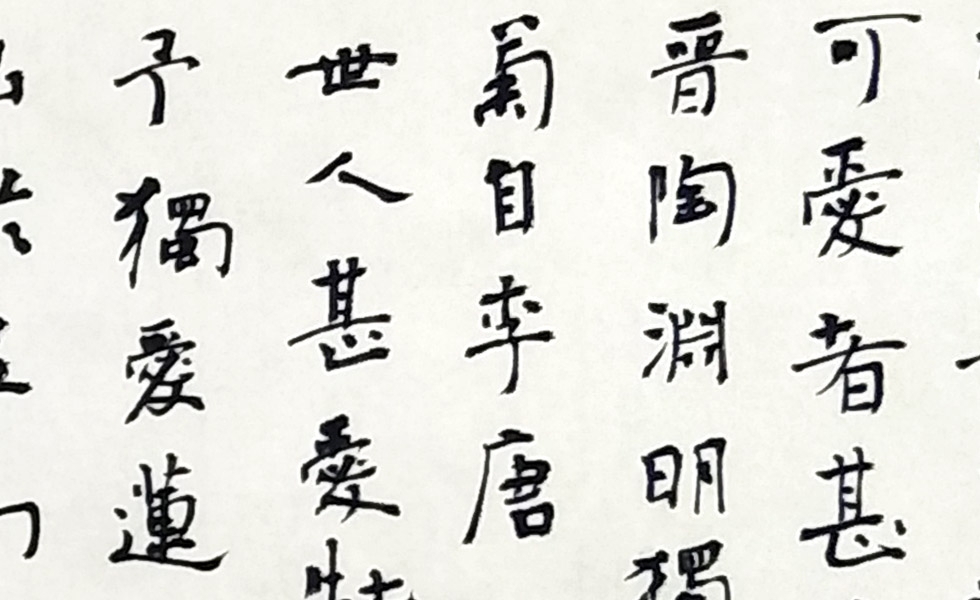 可愛者甚
晉陶淵明獨
菊自李唐
世人甚愛牡
予獨愛蓮